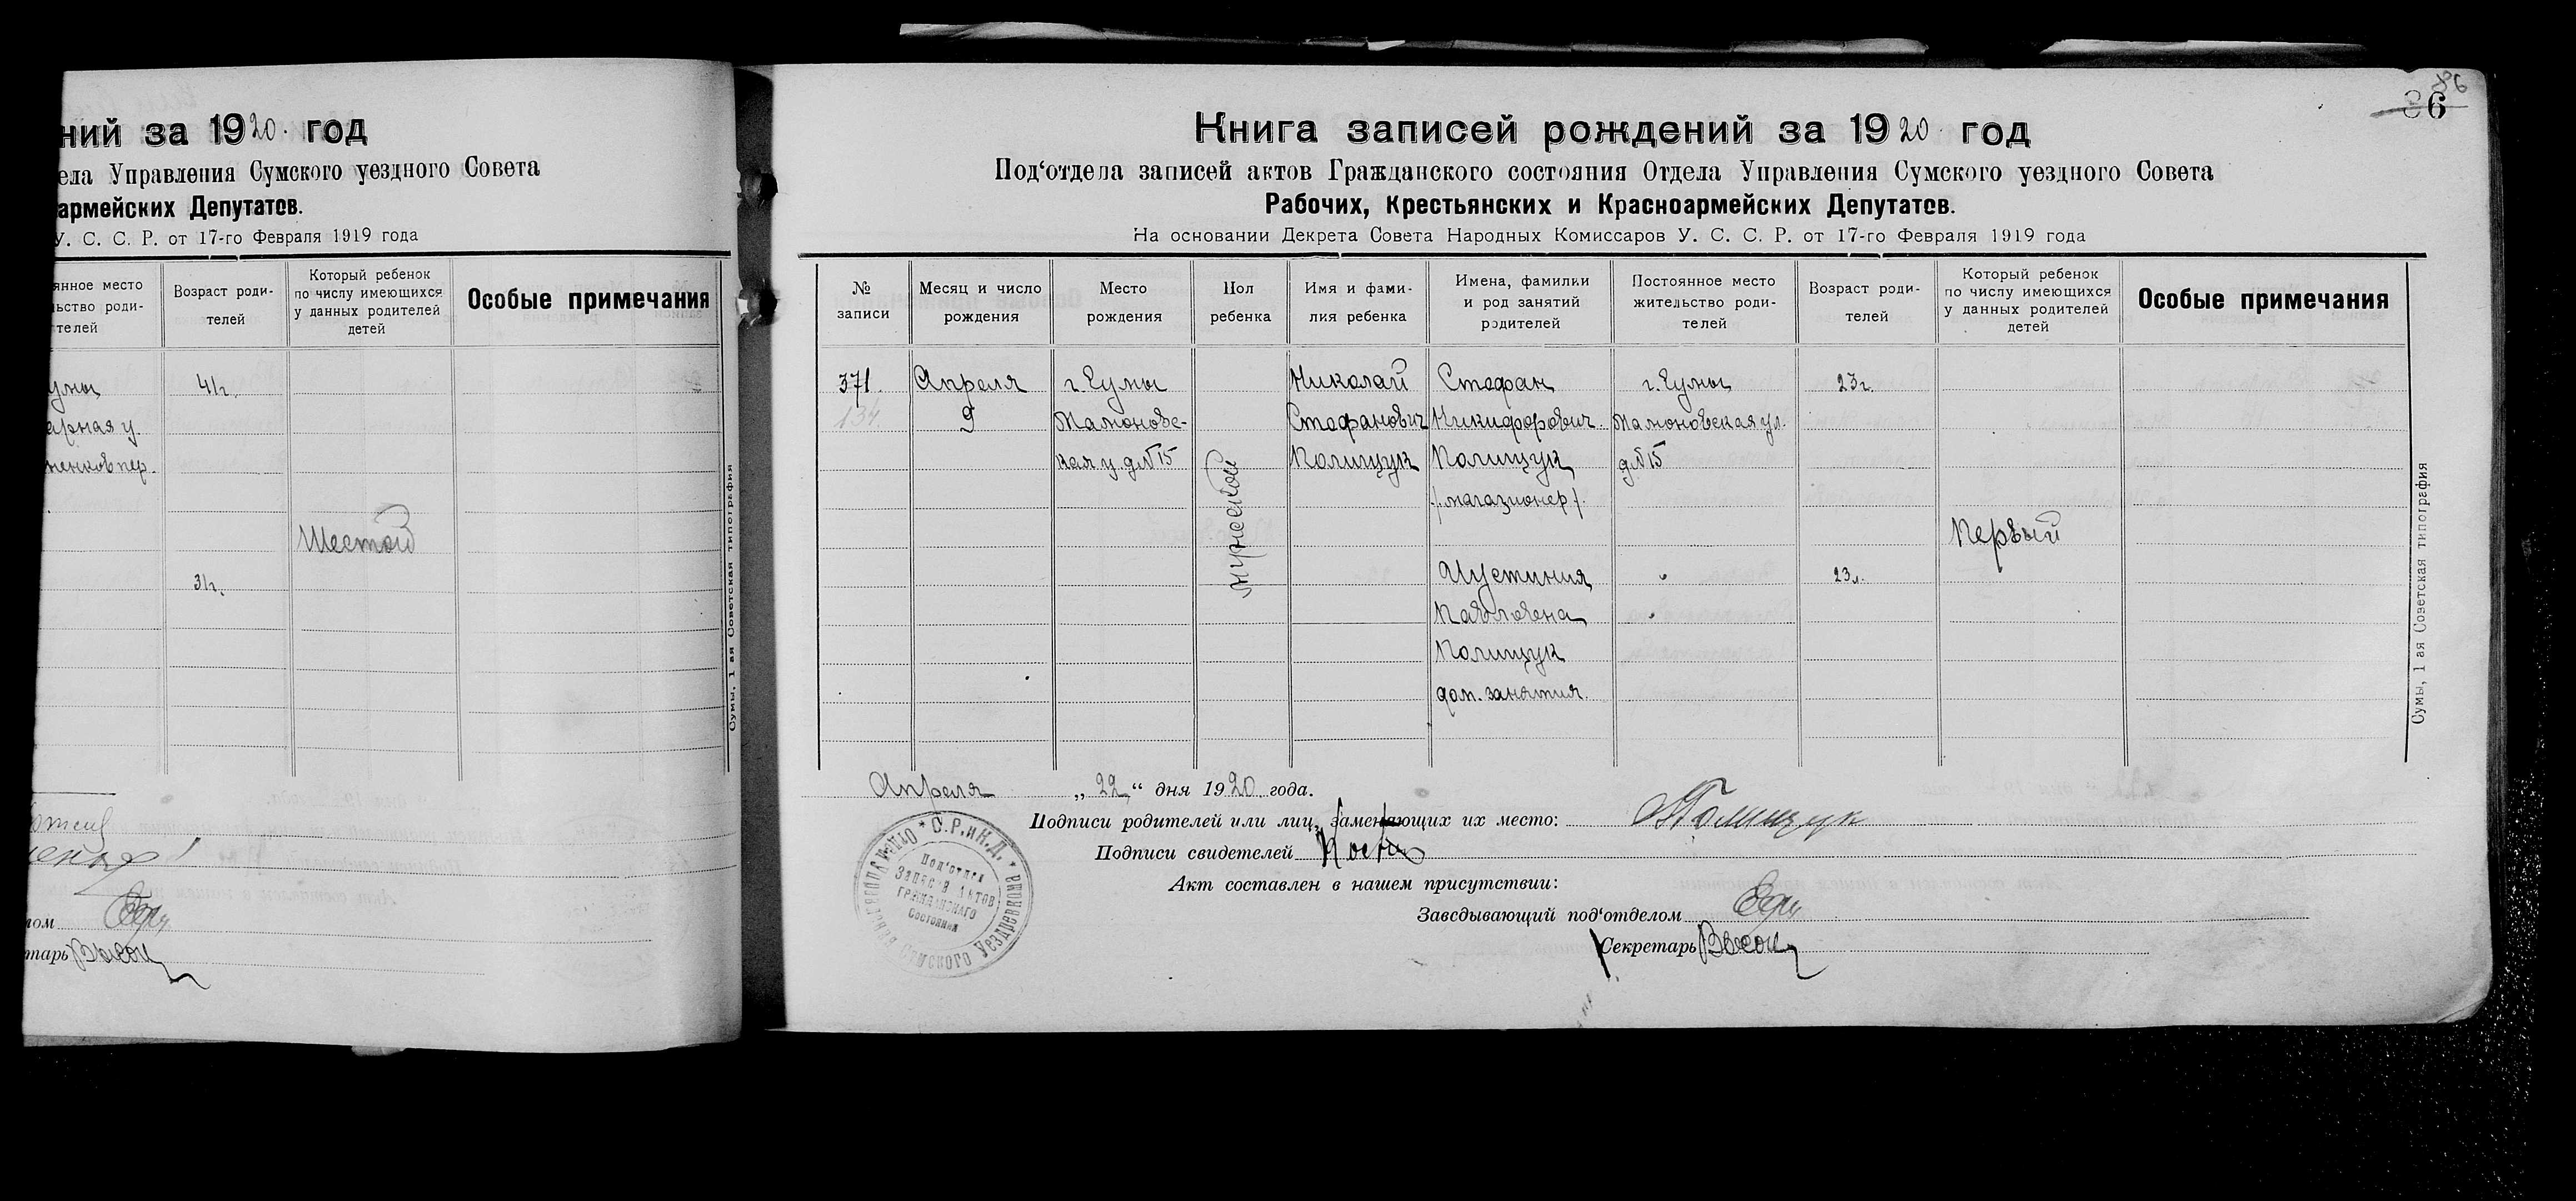 ний за 1920. год
ела Управления Сумского уездного Совета
армейских Депутатов.
У. С. С. Р. от 17-го Февраля 1919 года
янное место
ьство роди-
телей
Возраст роди-
телей
Который ребенок
по числу имеющихся
у данных родителей
детей
Особые примечания
умы
41г.
арная у.
ненков пер.
Шестой
31г.
том
тарь
Сумы, 1 ая Советская типография
86
36
Книга записей рождений за 1920 год
Под‘отдела записей актов Гражданского состояния Отдела Управления Сумского уездного Совета
Рабочих, Крестьянских и Красноармейских Депутатов.
На основании Декрета Совета Народных Комиссаров У. С. С. Р. от 17-го Февраля 1919 года
№
записи
Месяц и число
рождения
Место
рождения
Пол
ребенка
Имя и фами-
лия ребенка
Имена, фамилии
и род занятий
родителей
Постоянное место
жительство роди-
телей
Возраст роди-
телей
Который ребенок
по числу имеющихся
у данных родителей
детей
Особые примечания
371.
134.
Апреля
9
г. Сумы
кая у. д№15
мужской
Николай
Стефанович
Полищук
Стефан
Никифорович
Полищук
/магазионер/.
Иустиния
Павловна
Полищук
дом. занятия.
г. Сумы
д№15
23г.
23л.
Первый
Апреля „22“ дня 1920 года.
Подписи родителей или лиц, заменяющих их место: Полищук
Подписи свидетелей
Акт составлен в нашем присутствии:
Заведывающий под‘отделом
Секретарь
С.Р.иК.Д.
Под‘отдел
Записи Актов
Гражданскаго
Состояния
Сумы, 1 ая Советская типография